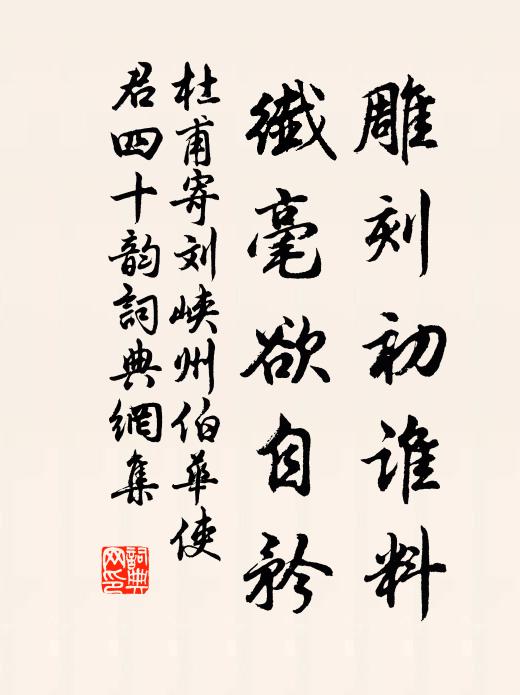 雕刻初谁料
纎毫欲自矜
杜甫寄刘峡州伯華使
君四十韵詞典網集
詞典网印